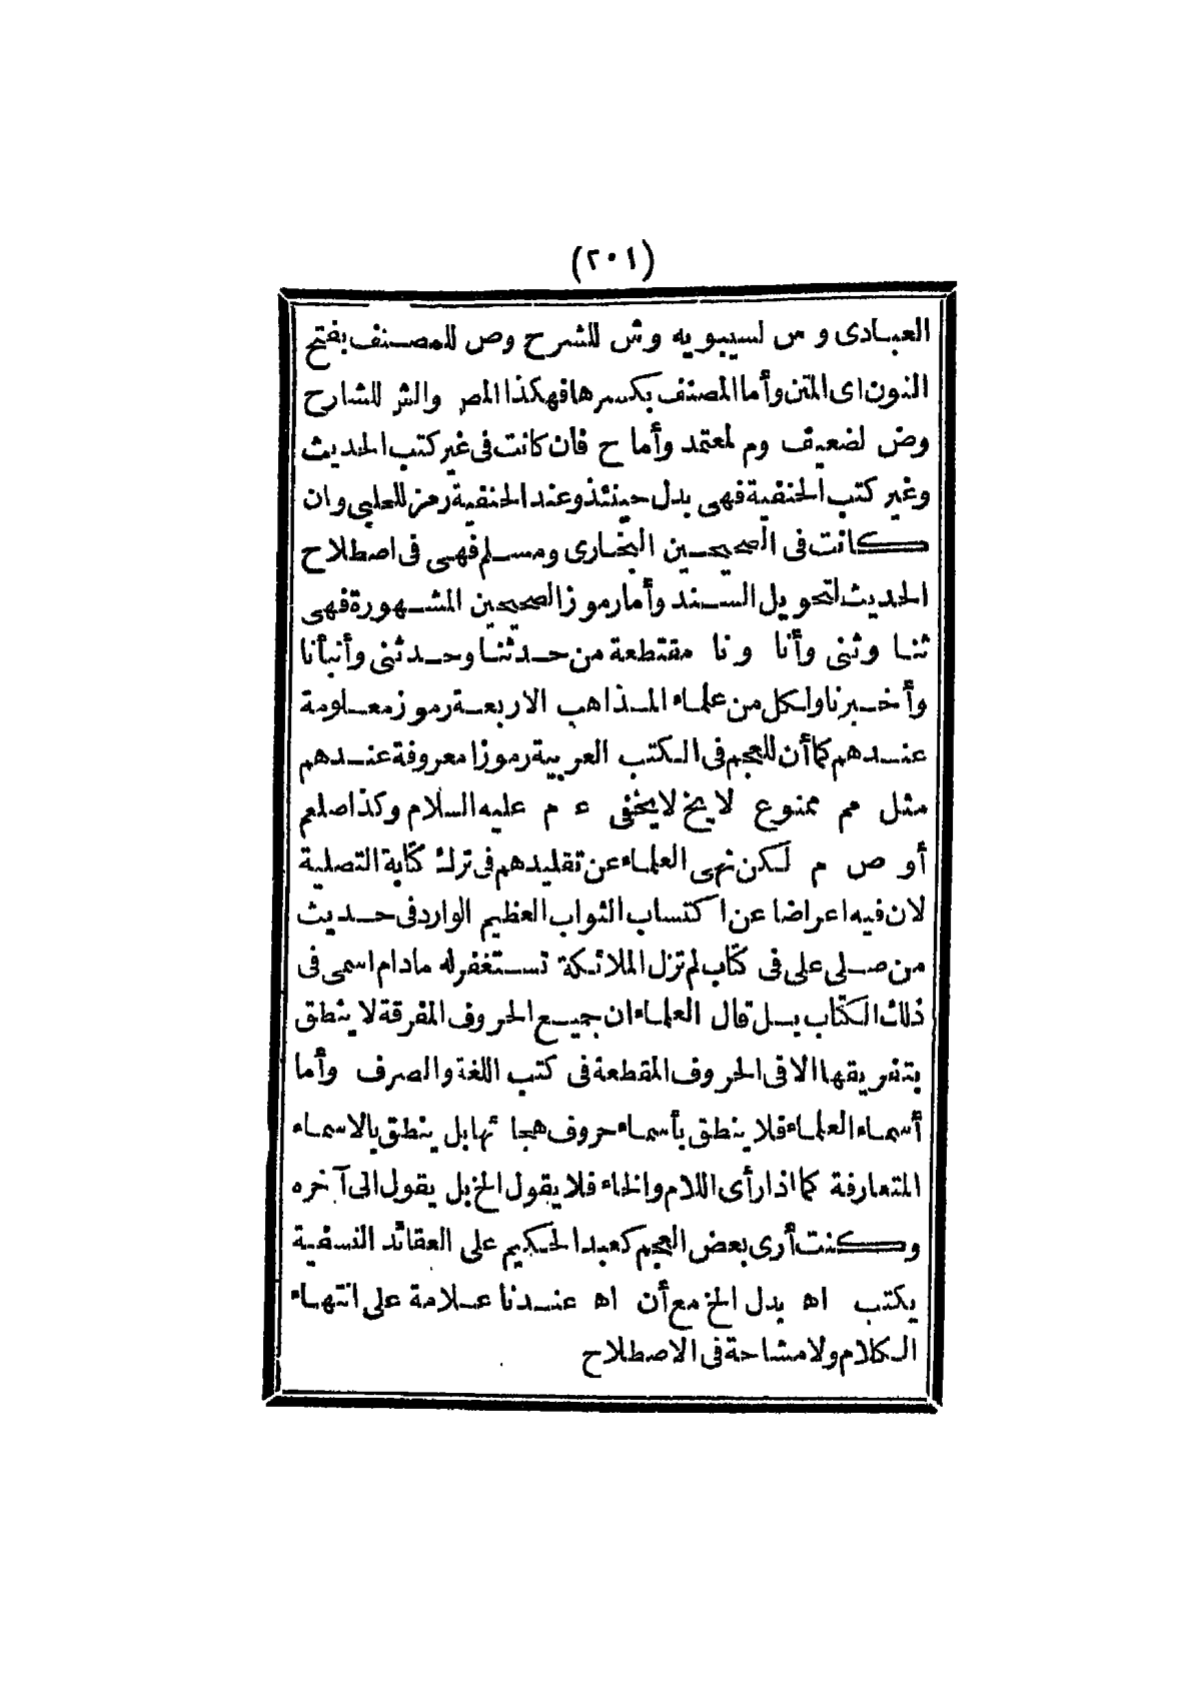 (٢٠١)
العبادى و س لسيبويه وش للشرح وص للمصنف بفتح
النون اى المتن وأما المصنف بكسرها فهكذا المص والشر للشارح
وض لضعيف وم لمعتمد وأما ح فان كانت فى غير كتب الحديث
وغير كتب الحنفية فهى بدل حينئذ وعند الحنفية رمز للحلبى وان
كانت فى الصحيحين البخارى ومسلم فهى فى اصطلاح
الحديث لتحويل السند وأما رموز الصحيحين المشهورة فهى
ثنا وثنى وأنا ونا مقتطعة من حدثنا وحدثنى وأنبأنا
وأخبرنا ولكل من علماء المذاهب الاربعة رموز معلومة
عندهم كما أن للعجم فى الكتب العربية رموزا معروفة عندهم
مثل مم ممنوع لا يخ لا يخفى ء م عليه السلام وكذا صلعم
أو ص م لكن نهى العلماء عن تقليدهم فى ترك كتابة التصلية
لان فيه اعراضا عن اكتساب الثواب العظيم الوارد فى حديث
من صلى على فى كتاب لم تزل الملائكة تستغفر له مادام اسمى فى
ذلك الكتاب بل قال العلماء ان جميع الحروف المفرقة لا ينطق
بتفريقها الا فى الحروف المقطعة فى كتب اللغة والصرف وأما
أسماء العلماء فلا ينطق بأسماء حروف هجائها بل ينطق بالاسماء
المتعارفة كما اذا رأى اللام والخاء فلا يقول الخ بل يقول الى آخره
وكنت أرى بعض العجم كعبد الحكيم على العقائد النسفية
يكتب اه بدل الخ مع أن اه عندنا علامة على انتهاء
الكلام ولا مشاحة فى الاصطلاح